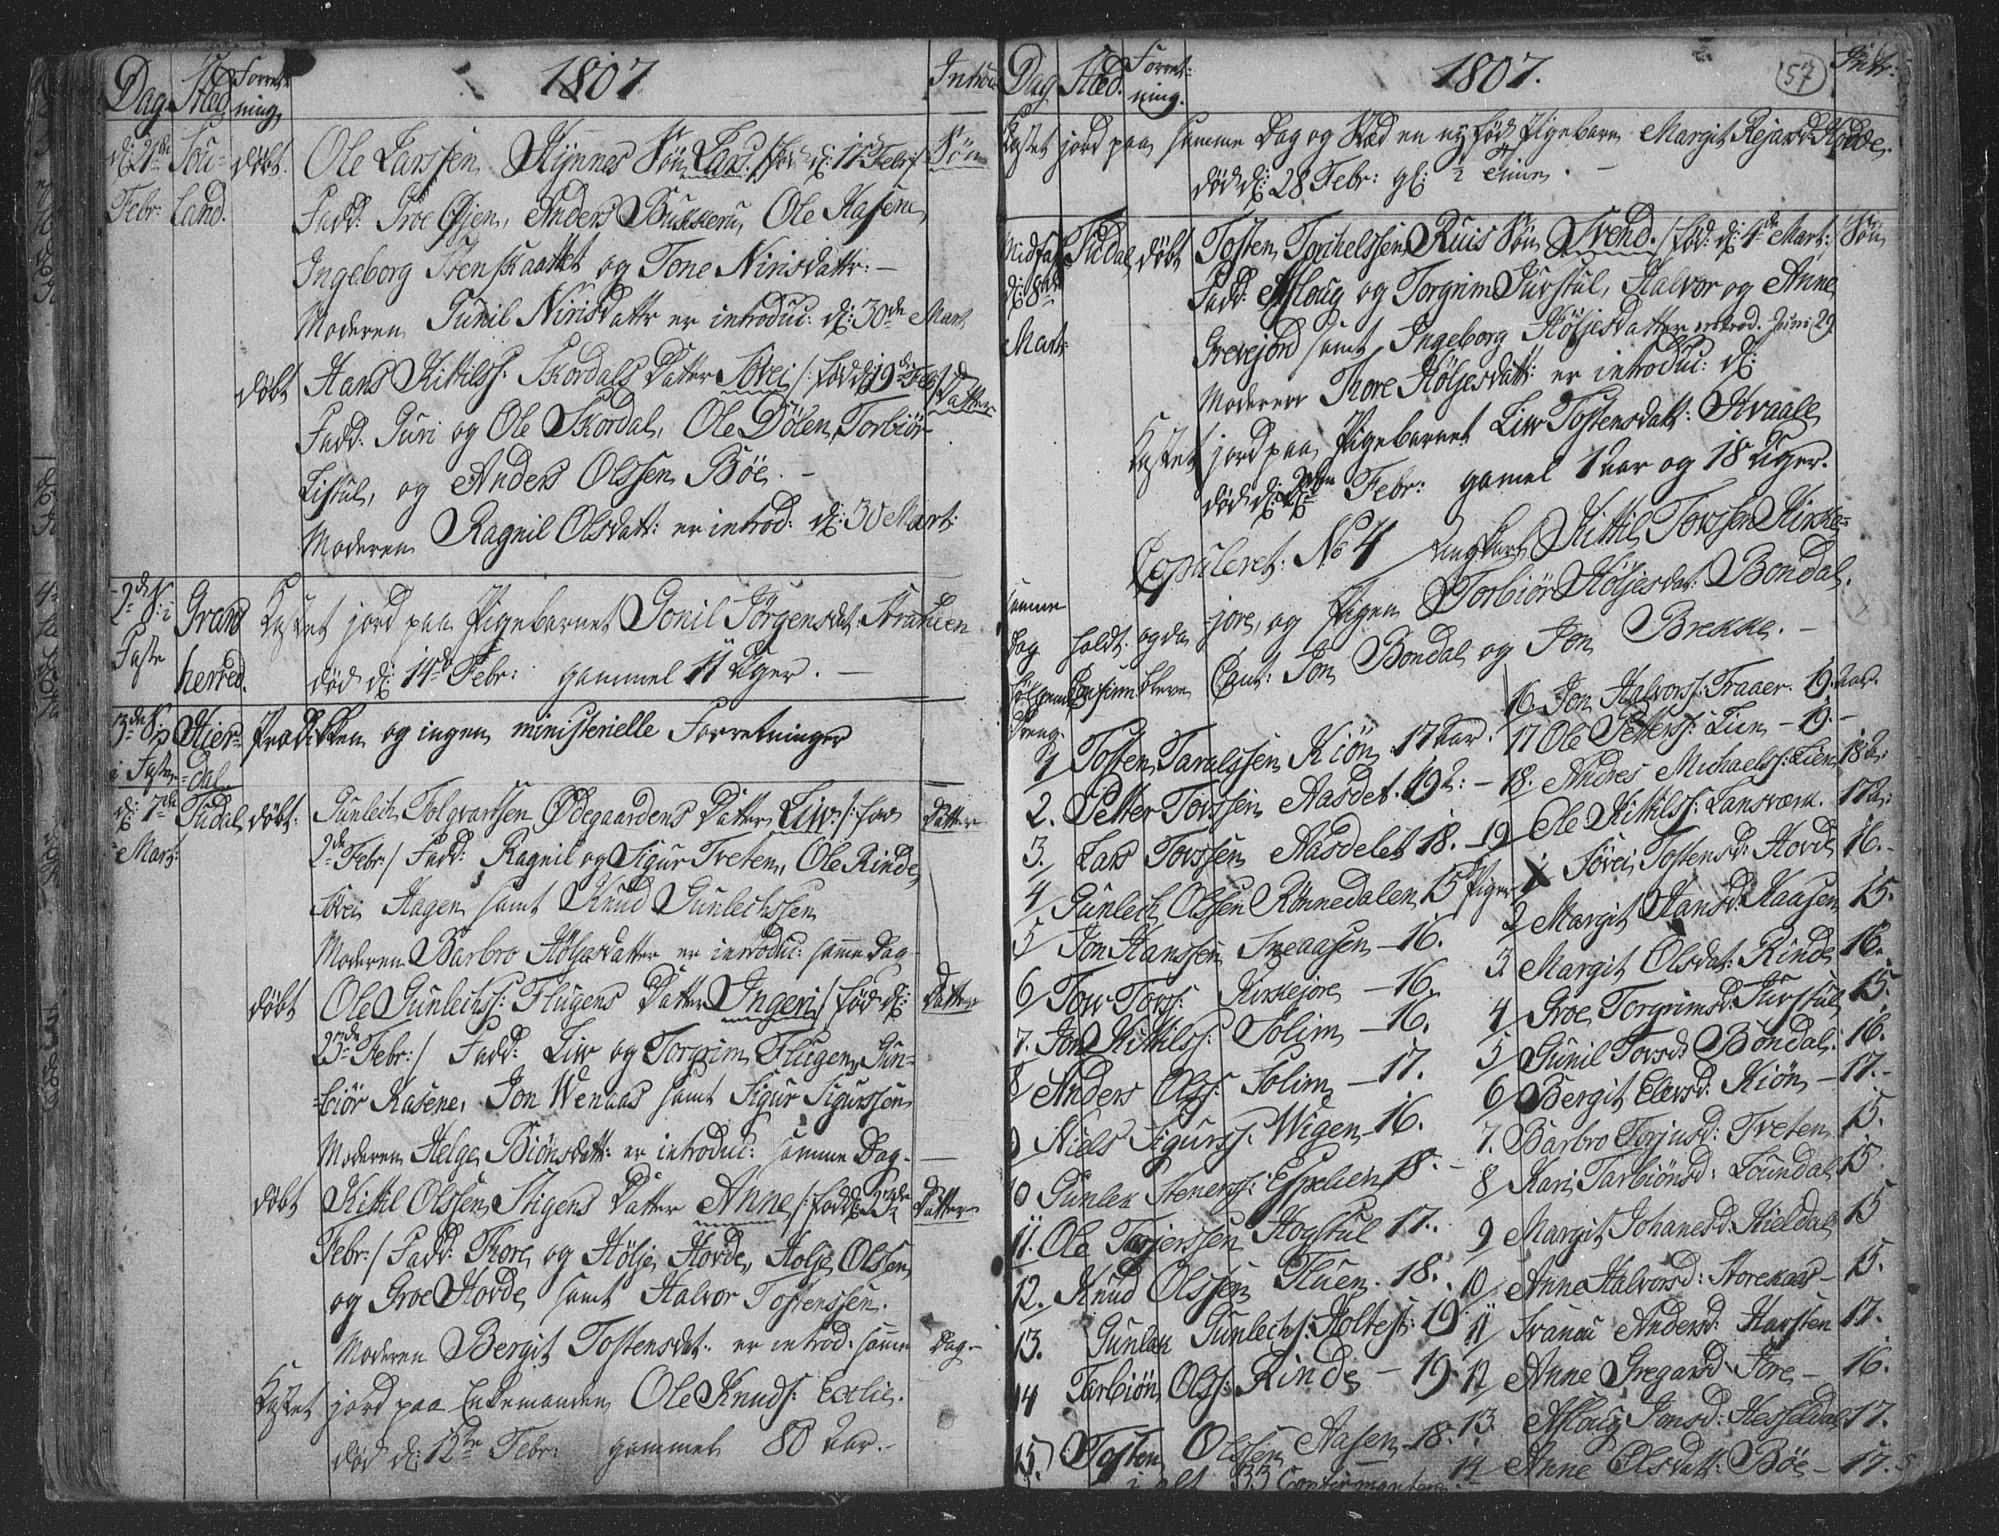 Dag. Sted. Forret-
ning,
1807
Introd.
d: 21de Sou- døbt. Ole Larssen Søn Lars /: fød d: 11te Febr: Søn
Febr: land. Fadd: Groe Anders Ole Kasene,
Ingeborg og Tone Nirisdattr: —
Moderen Gunil Nirisdattr er introduc: d: 30de Mart:
døbt Hans Kittilss: Skordals Datter Søvei /: fød d: 19de Febr: Datter
Fadd: Guri og Ole Skordal, Ole Dølen, Torbiør
Listul, og Anders Olssen Böe. —
Moderen Ragnil Olsdatt: er introd: d: 30 Mart:
2den S: i Grans- Kastet jord paa Pigebarnet Gonil Jörgensdat:
Faste herred. død d: 14de Febr: gammel 11 Uger. —
3de S: Hier- Prædiken og ingen ministerielle Forretninger
i Faste dal
d: 7de Tudal døbt: Gunlech Folqvartsen Ödegaardens Datter Liw /: fød Datter
Mart: 2de Febr: / Fadd: Ragnil og Sigur Tveten, Ole Rinde,
Søvei Hagen samt Knud Gunlechssen
Moderen Barbro Höljesdatter er introduc: samme Dag
døbt Ole Gunlechss: Flugens Datter Ingeri / fød d: Datter
23de Febr: / Fadd: Liw og Torgrim Flugen, Gun-
biör Kasene, Jon Wenaas samt Sigur Sigurssen
Moderen Helge Biönsdatt: er introduc: samme Dag. —
døbt Kittil Olssen Stigens Datter Anne /: fød d: 23de Datter
Febr: / Fadd: Thore og Hölje Hovde, Holje Olssen
og Groe Hovde samt Halvor Tostenssen.
Moderen Bergit Tostensdat: er introd: samme Dag. —
Kastet jord paa Enkemanden Ole Knuds:
død d: 12te Febr: gammel 80 Aar. —
Dag Sted. Forret-
ning.
1807.
57
Intr:
Kastet jord paa samme Dag og Sted en nyfød Pigebarn Margit
død d: 28 Febr: gl: 2 Timer. —
Midfaste Tudal døbt Tosten Torchelssen Ruis Søn Svend. / fød: d: 4de Mart: / Søn
d: 8de Fadd: Asloug og Torgrim Gurstul, Halvor og Anne
Mart: Grevejord samt Ingeborg Höljesdatter introd. Juni 29
Moderen Thore Höljesdatt: er introduc: d:
Kastet jord paa Pigebarnet Liw Tostensdatt: Kvaale
død d: Febr: gamel 1 Aar og 18 Uger.
Copuleret: No 4 Ungkarl Kittil Towsen Kirke-
jore, og Pigen Torbiör Höljesdat: Bondal.
Caut: Jon Bondal og Jon Brekke. —
samme
Dag holdt og da
bleve
Dreng.
1 Tosten Taralssen Kiön 17 Aar.
2. Petter Towssen Aasdet. 19 A: —
3. Lars Towssen Aasdelet 18. —
4 Gunlech Olssen Rönnedalen 15
5 Jon Hanssen Sneaasen — 16.
6 Tow Tows: Kirkejore — 16.
7. Jon Kittilss: Solim — 16.
8 Anders Olss: Solim — 17.
9 Niels Sigurss: Wigen — 16.
10 Gunlek Stenerss: Espelien 18. —
11. Ole Torjerssen Hogstul 17.
12. Knud Olssen Fluen. 18.
13. Gunlek Gunlechs: Holtet: 19
14 Tarbiön Olss: Rinde — 19
15. Tosten Olssen Aasen — 18.
16. Jon Halvorss: Traaer. 19. Aar.
17 Ole Petterss: Lien — 19. —
18. Andres Michaelss: Lien 18 A:
19 Ole Kittilss: Lansværk. 17 A:
Piger 1 Søvei Tostensd: Hovde 16. —
2 Margit Hansd: Haasen 15.
3. Margit Olsdat: Rinde 16.
4 Groe Torgrimsd: Gurstul 15.
5 Gunil Towsd: Bondal: 16.
6 Bergit Elevsd: Kiön — 17. —
7. Barbro Torjusd: Tveten 15.
8 Kari Tarbiönsd: Loundal 15.
9 Margit Johanesd: Kieldal 15
10 Anne Halvorsd: — 15.
11 Anders: 17.
12 Anne Gregarsd: Jore — 16.
13. Asloug Jonsd: Hesseldal 17.
14 Anne Olsdatt: Böe — 17.
i alt 33 Confirmantere.